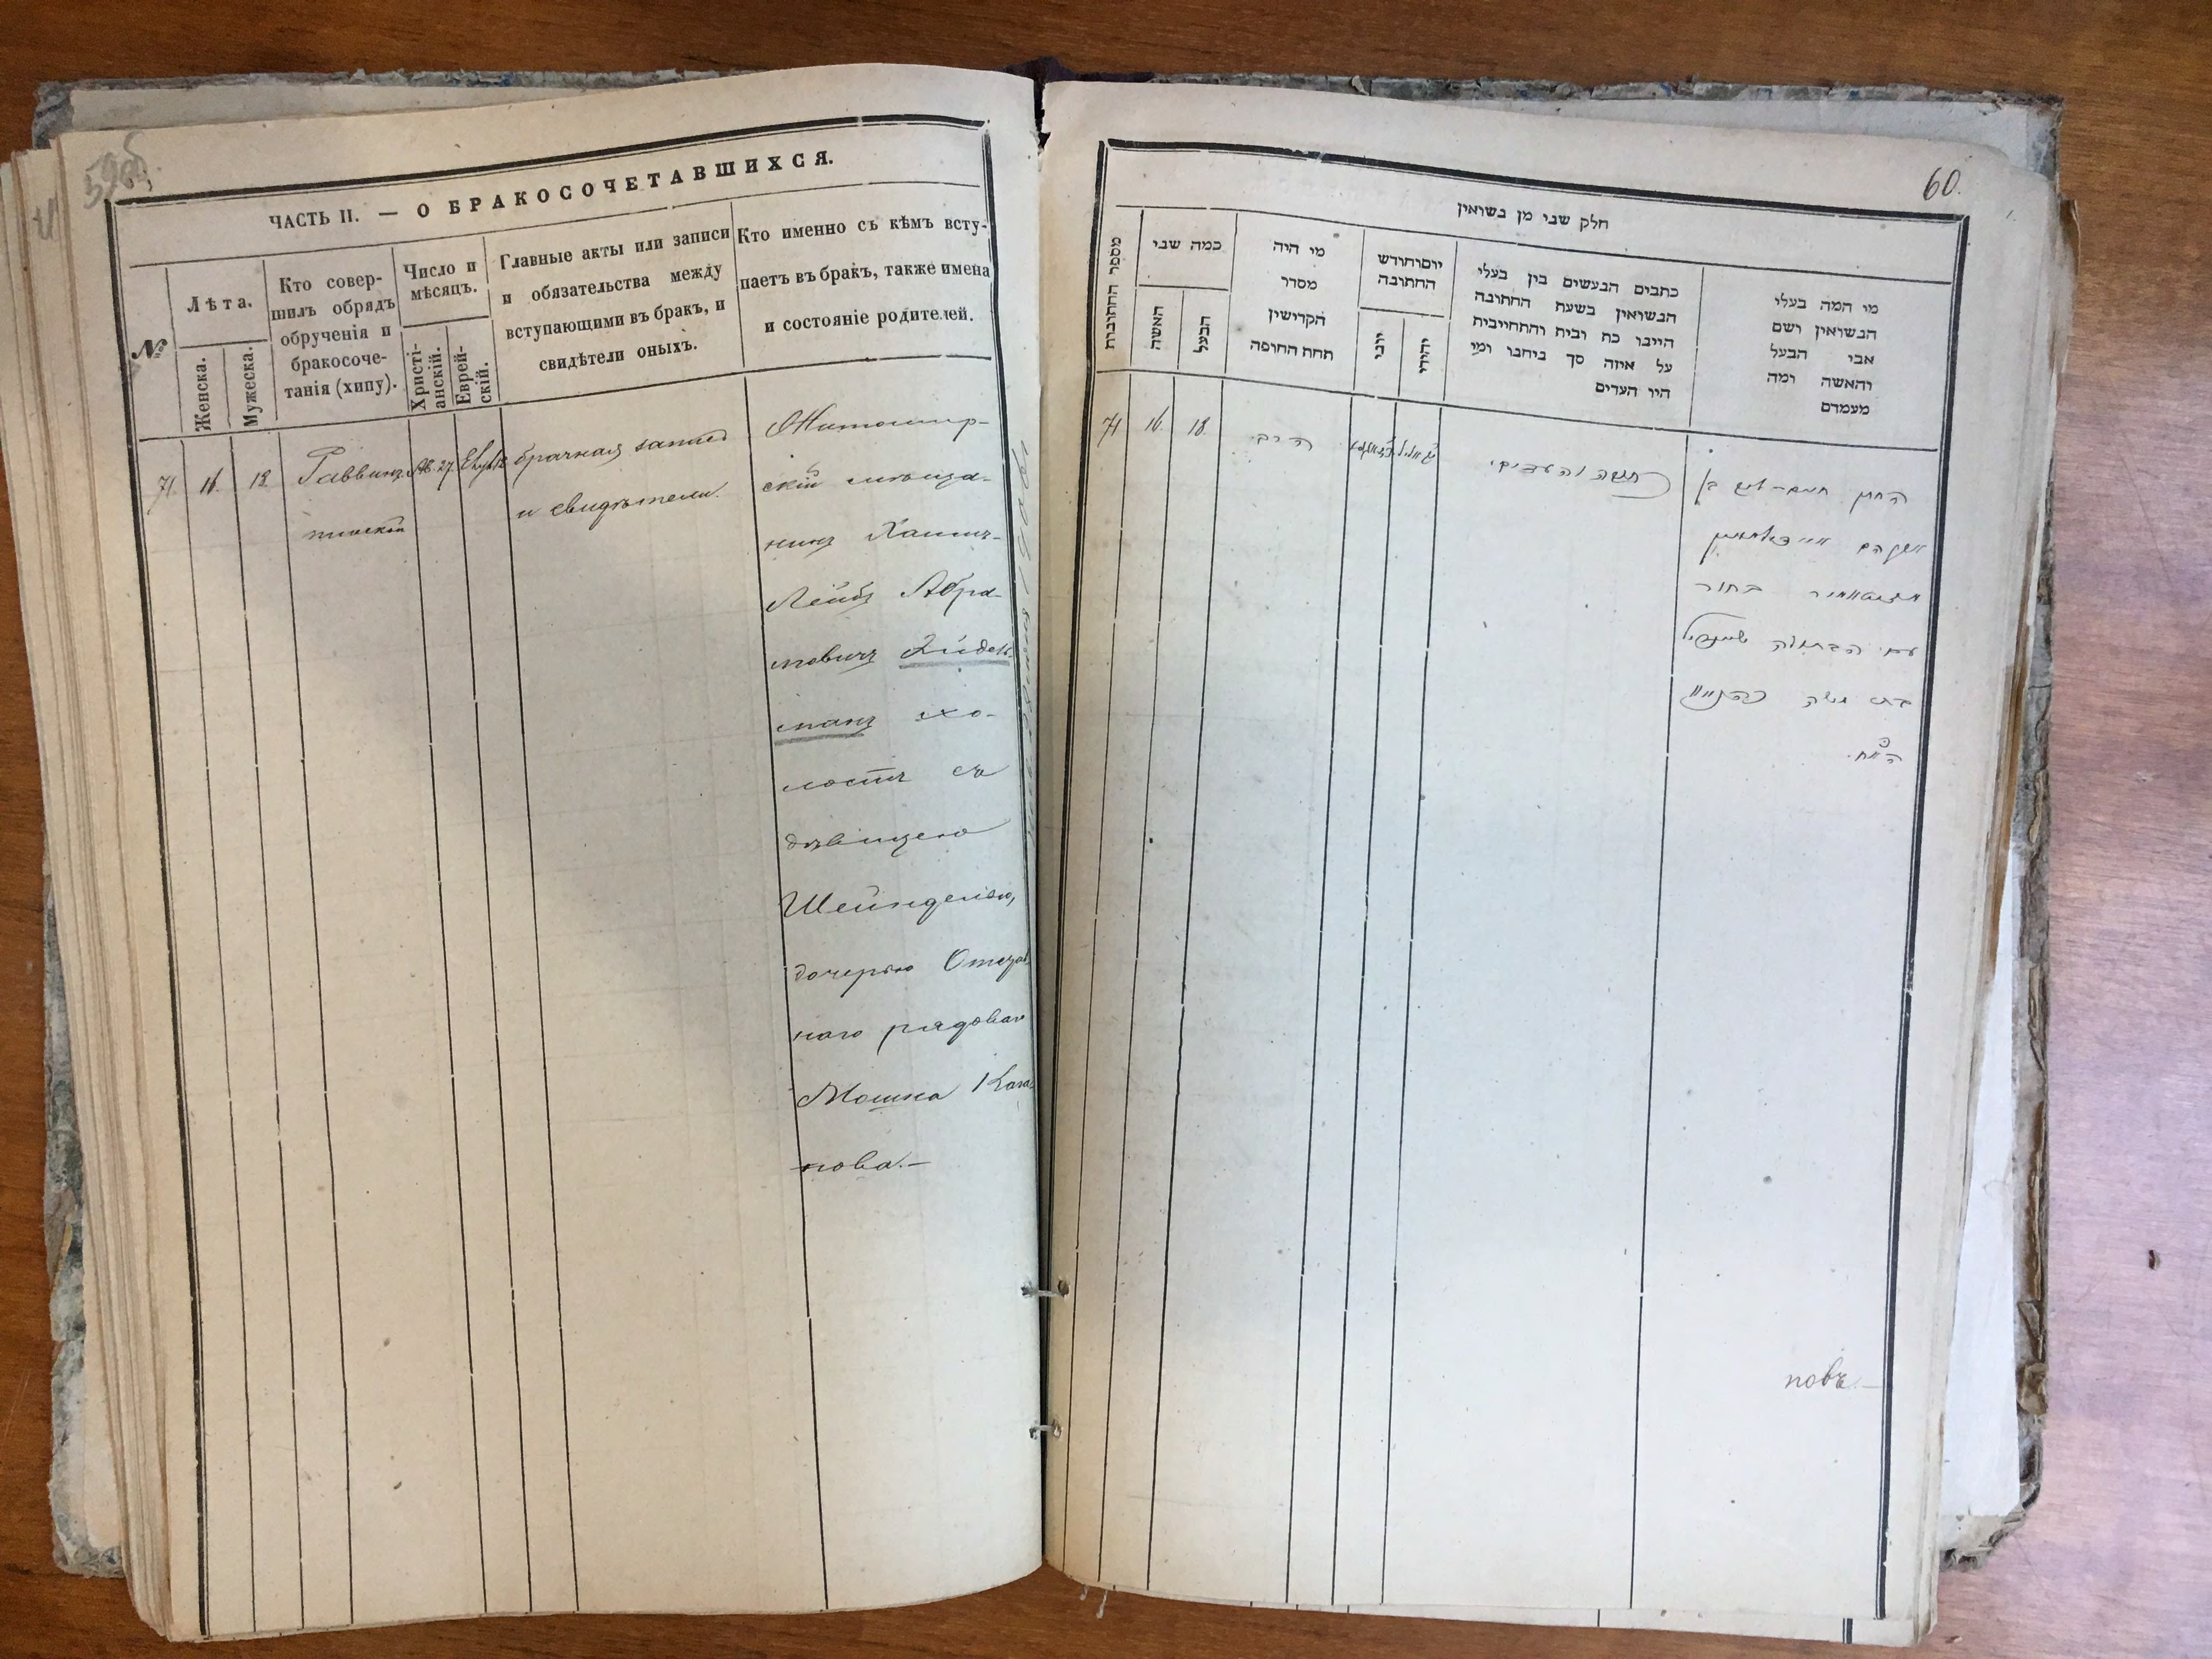 59об.
ЧАСТЬ II. — О БРАКОСОЧЕТАВШИХСЯ.
№
Лѣта.
Женска.
Мужеска.
Кто совер-
шилъ обрядъ
обрученія и
бракосоче-
танія (хипу).
Число и
мѣсяцъ.
Христі-
анскій.
Еврей-
скій.
Главные акты или записи
и обязательства между
вступающими въ бракъ, и
свидѣтели оныхъ.
Кто именно съ кѣмъ всту-
паетъ въ бракъ, также имена
и состояніе родителей.
71.
16.
18.
Раввинъ
27.
брачная запись
и свидѣтели.
Житомир-
скій мѣща-
нинъ Хаимъ-
Лейбъ Абра-
мовичъ
манъ хо-
лостъ съ
дѣвицею
Шейнделею,
дочерью
наго рядоваго
Мошка
нова.—
60.
חלק שני מן נשואין
מספר החתונות
כמה שני
האשה
הבעל
מי היה
מסדר
הקדישין
תחת החופה
יום וחודש
החתונה
יוני
יהודי
כתבים הנעשים בין בעלי
הנשואין בשעת החתונה
היינו כח ובית והתחייבית
על איזה סך ביחנו ומי
היו העדים
מי המה בעלי
הנשואין ושם
אבי הבעל
והאשה ומה
מעמדם
71
16.
18.
הרב.
החתן חיים-ליב בן
אברהם
בחור
עם הבתולה שיינדיל
בת משה
новъ.—